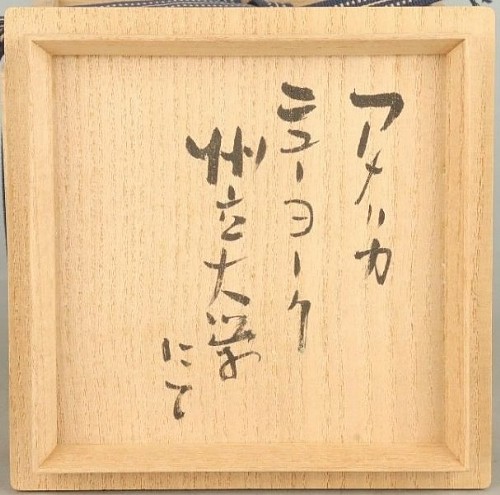 アメリカ
ニューヨーク
州立大学
にて